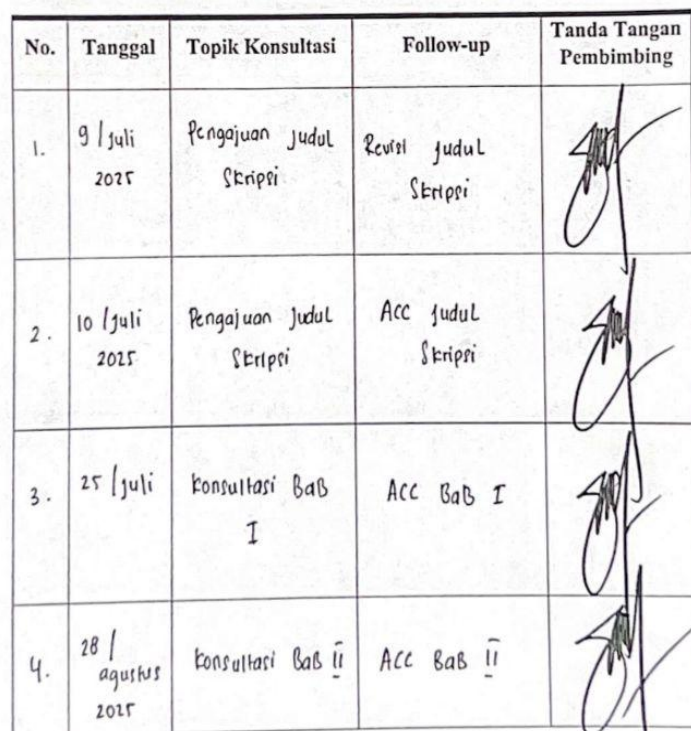 No.
Tanggal
Topik Konsultasi
Follow-up
Tanda Tangan
Pembimbing
1.
9/Juli
2025
Pengajuan Judul
Skripsi
Revisi Judul
Skripsi
2.
10/Juli
2025
Pengajuan Judul
Skripsi
ACC Judul
Skripsi
3.
25/Juli
Konsultasi BaB
I
ACC BaB I
4.
28/
agustus
2025
Konsultasi BaB II
ACC BaB II